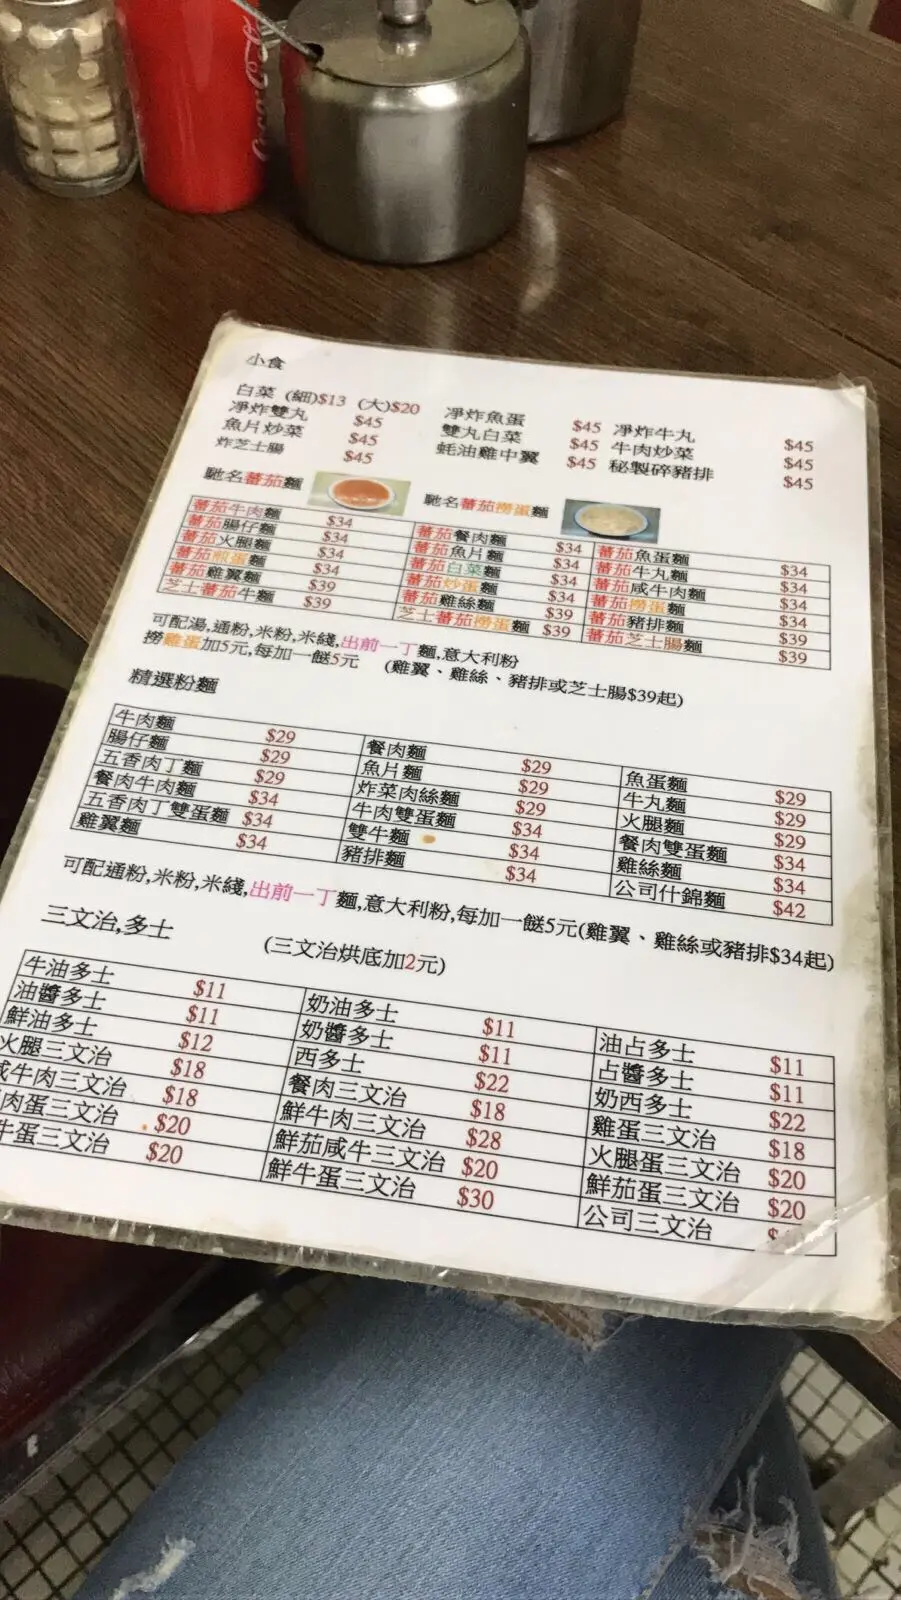 Coca-Cola
小食
白菜 (細)$13 (大)$20
淨炸雙丸 $45 淨炸魚蛋 $45 淨炸牛丸 $45
魚片炒菜 $45 雙丸白菜 $45 牛肉炒菜 $45
炸芝士腸 $45 蚝油雞中翼 $45 秘製碎豬排 $45
馳名蕃茄麵 馳名蕃茄撈蛋麵
蕃茄牛肉麵 $34 蕃茄餐肉麵 $34 蕃茄魚蛋麵 $34
蕃茄腸仔麵 $34 蕃茄魚片麵 $34 蕃茄牛丸麵 $34
蕃茄火腿麵 $34 蕃茄白菜麵 $34 蕃茄咸牛肉麵 $34
蕃茄煎蛋麵 $34 蕃茄炒蛋麵 $34 蕃茄撈蛋麵 $34
蕃茄雞翼麵 $39 蕃茄雞絲麵 $39 蕃茄豬排麵 $39
芝士蕃茄牛麵 $39 芝士蕃茄撈蛋麵 $39 蕃茄芝士腸麵 $39
可配湯,通粉,米粉,米綫,出前一丁麵,意大利粉
撈雞蛋加5元,每加一餸5元 (雞翼、雞絲、豬排或芝士腸$39起)
精選粉麵
牛肉麵 $29 餐肉麵 $29 魚蛋麵 $29
腸仔麵 $29 魚片麵 $29 牛丸麵 $29
五香肉丁麵 $29 炸菜肉絲麵 $29 火腿麵 $29
餐肉牛肉麵 $34 牛肉雙蛋麵 $34 餐肉雙蛋麵 $34
五香肉丁雙蛋麵 $34 雙牛麵 $34 雞絲麵 $34
雞翼麵 $34 豬排麵 $34 公司什錦麵 $42
可配通粉,米粉,米綫,出前一丁麵,意大利粉,每加一餸5元(雞翼、雞絲或豬排$34起)
三文治,多士 (三文治烘底加2元)
牛油多士 $11 奶油多士 $11 油占多士 $11
油醬多士 $11 奶醬多士 $11 占醬多士 $11
鮮油多士 $12 西多士 $22 奶西多士 $22
火腿三文治 $18 餐肉三文治 $18 雞蛋三文治 $18
咸牛肉三文治 $18 鮮牛肉三文治 $28 火腿蛋三文治 $20
肉蛋三文治 $20 鮮茄咸牛三文治 $20 鮮茄蛋三文治 $20
牛蛋三文治 $20 鮮牛蛋三文治 $30 公司三文治